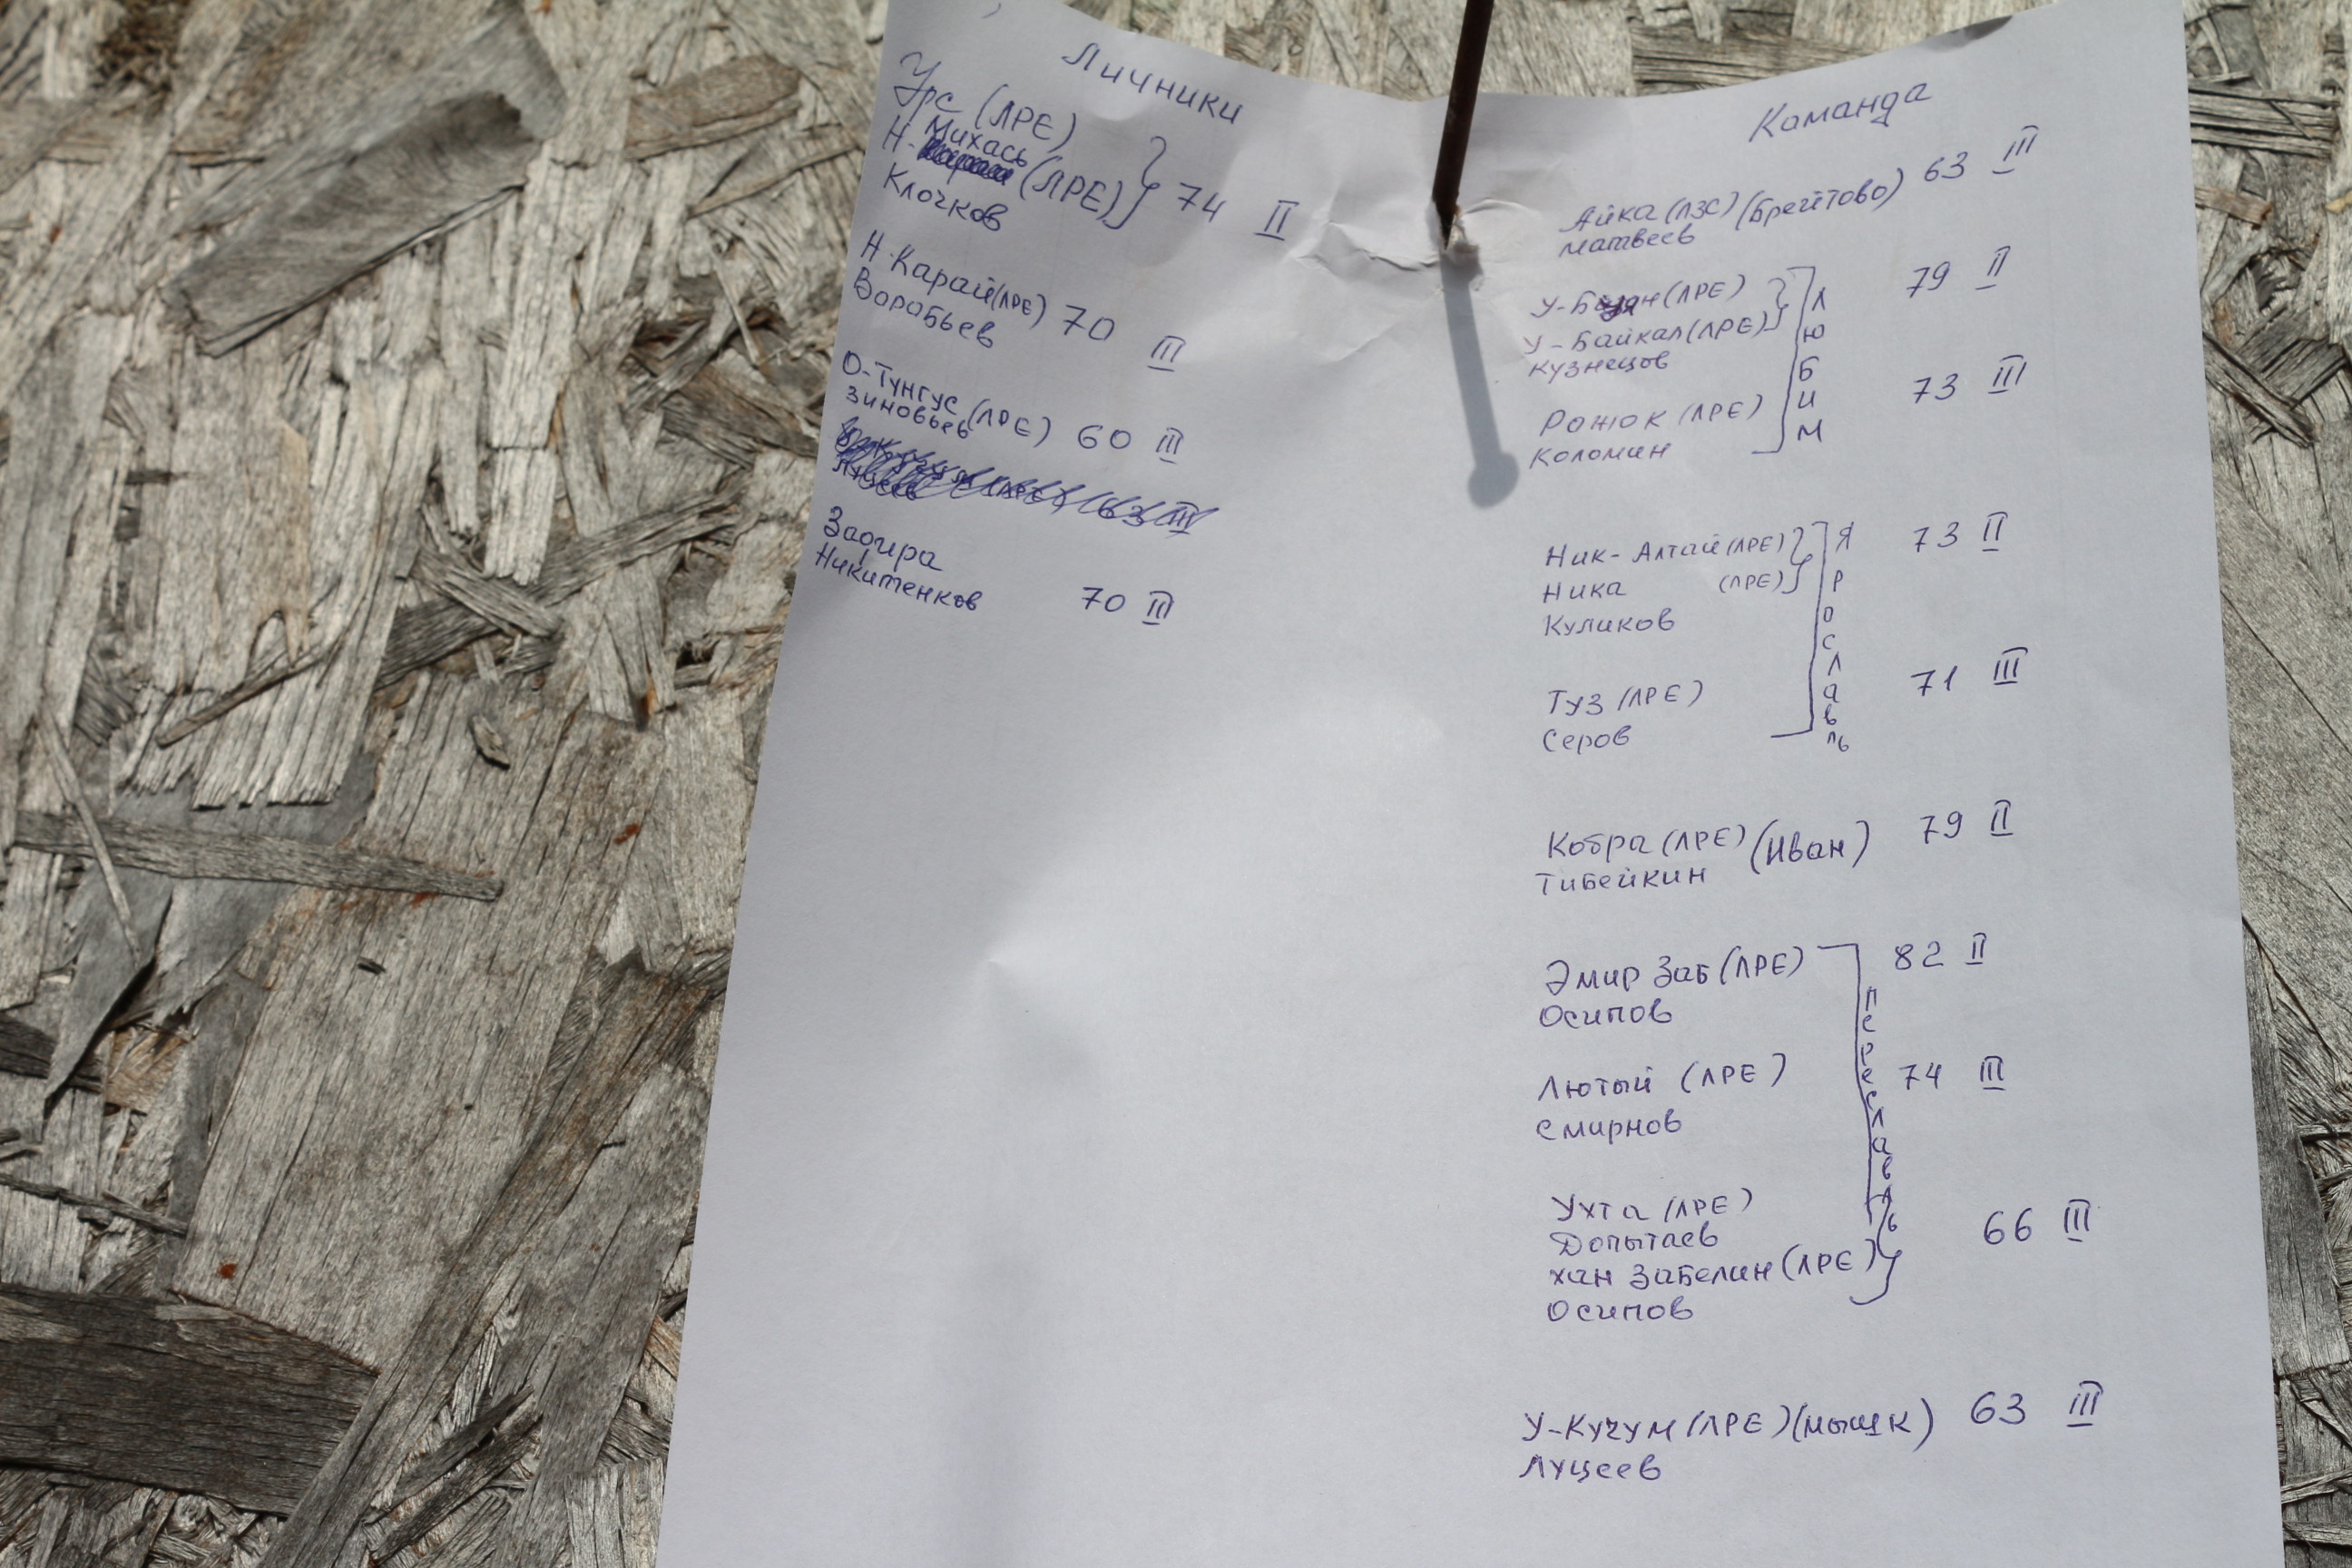 Личники
Урс (ЛРЕ)
Михась
Н- (ЛРЕ) 74 II
Клочков
Н-Карай (ЛРЕ) 70 III
Воробьев
О-Тунгус (ЛРЕ) 60 III
Зиновьев
63 III
Луцеев
Задира
Никитенков 70 III
Команда
Айка (ЛЗС) (Брейтово) 63 III
Матвеев
У- (ЛРЕ) 79 II
У-Байкал (ЛРЕ)
Кузнецов
Любим
Рожок (ЛРЕ) 73 III
Коломин
Ник-Алтай (ЛРЕ) 73 II
Ника (ЛРЕ)
Куликов
Ярославль
Туз (ЛРЕ) 71 III
Серов
Кобра (ЛРЕ) (Иван) 79 II
Тибейкин
Эмир Заб (ЛРЕ) 82 II
Осипов
Переславль
Лютый (ЛРЕ) 74 III
Смирнов
Ухта (ЛРЕ)
Допытаев 66 III
хан Забелин (ЛРЕ)
Осипов
У-Кучум (ЛРЕ) (мышк) 63 III
Луцеев